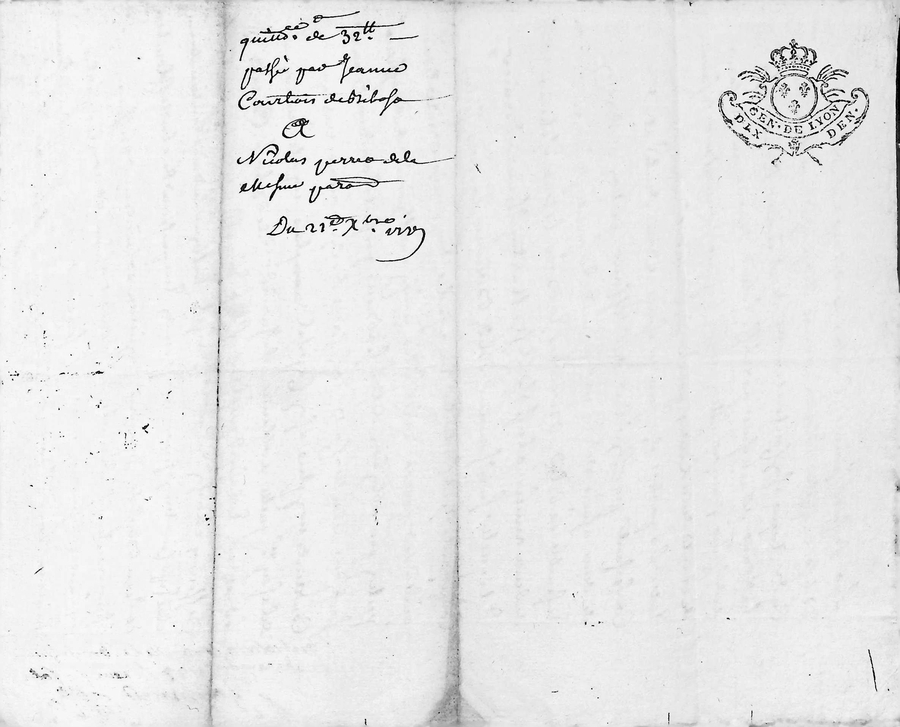 quittce de 32tt
passé par Jeanne
Courtois de
A
Nicolas perre dela
mesme parr
Du 21e Xbre
GEN. DE LYON
DIX DEN.